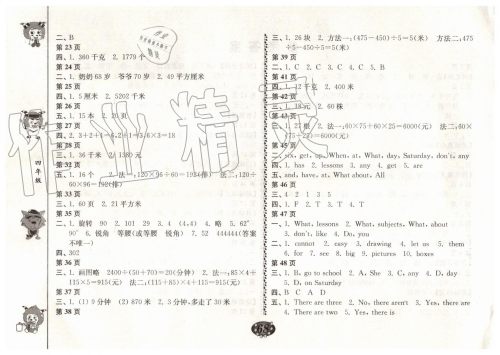 二、B
第 23 页
四、1. 360 千克 2. 1779 个
第 24 页
二、1. 奶奶 63 岁 爷爷 70 岁 2. 49 平方厘米
第 25 页
四、1. 5 厘米 2. 5202 千米
第 26 页
五、1. 15 本 2. 20 页
第 27 页
四、2. 3+2+1=6,2-1=3,6×3=18
第 32 页
三、1. 36 千米
五、1. 16 个 2. 方法一:120×96÷60=192(排) 方法二:120÷
60×96=192(排)
第 33 页
六、1. 60 页 2. 21 平方米
第 35 页
一、1. 旋转 90 2. 101 29 3. 4 (4,4) 4. 略 5. 62°
90° 6. 锐角 等腰(或等腰 锐角) 7. 52 444444(答案
不唯一)
四、302
第 36 页
三、1. 画图略 2400÷(50+70)=20(分钟) 2. 方法一:85×4+
115×5=915(元) 法二:(115+85)×4+115=915(元)
第 37 页
三、1. (1) 9 分钟 (2) 870 米 2. 3 分钟,多走了 30 米
第 38 页
三、1. 26 块 2. 方法一:(475-450)÷5=5(米) 方法二:475
÷5-450÷5=5(米)
第 39 页
一、1. C 2. C 3. C 4. C 5. B
第 41 页
四、1. 12 千克 2. 400 米
第 42 页
三、1. 18 元 2. 60 株
第 43 页
三、1. 27 根 2. 法一:60×75+60×25=6000(元) 法二:60×
(75+25)=6000(元)
第 45 页
二、six, get, up, When, at, What, day, Saturday, don't, any
四、1. has 2. lessons 3. any 4. get 5. are
五、and, have, at, What about, All
第 46 页
三、4 2 1 3 5
四、1. F 2. T 3. T 4. T
第 47 页
一、1. What, lessons 2. What, subjects, What, about
3. don't, like 4. Do, you
二、1. cannot 2. easy 3. drawing 4. let us 5. them
6. for 7. see 8. big 9. pictures 10. boxes
第 48 页
三、1. B, go to school 2. A, She 3. C, any 4. D, day
5. D, on Saturday
四、B C A D
五、1. There are three 2. No, there aren't 3. Yes, there are
4. There are two 5. Yes, there is
四年级